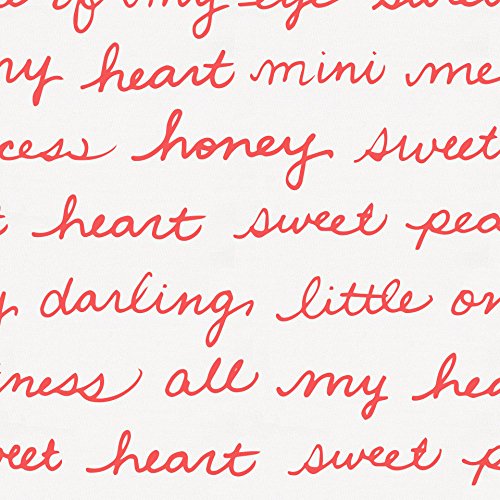 of my eye sweet
ny heart mini me
cess honey sweet
t heart sweet pea
y darling little on
iness all my hea
weet heart sweet p